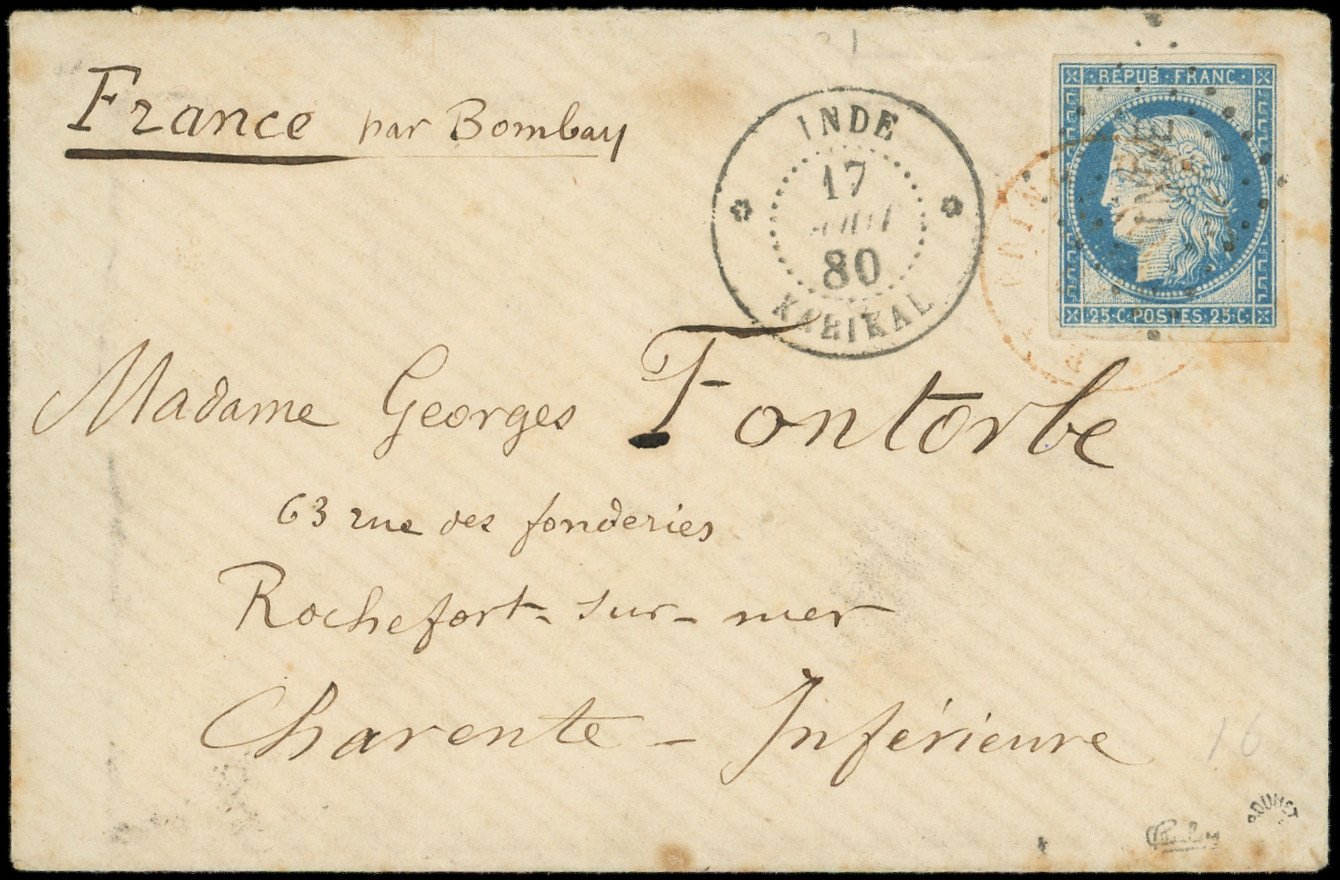 France par Bombay
INDE
17
80
KARIKAL
REPUB. FRANC.
25.C. POSTES. 25.C.
Madame Georges Fontorbe
63 rue des fonderies
Rochefort-sur-mer
Charente-Inférieure
16
ROUMET